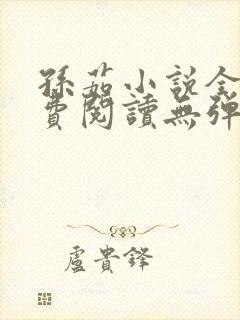 孫茹小說全
費閱讀無彈
盧貴鋒